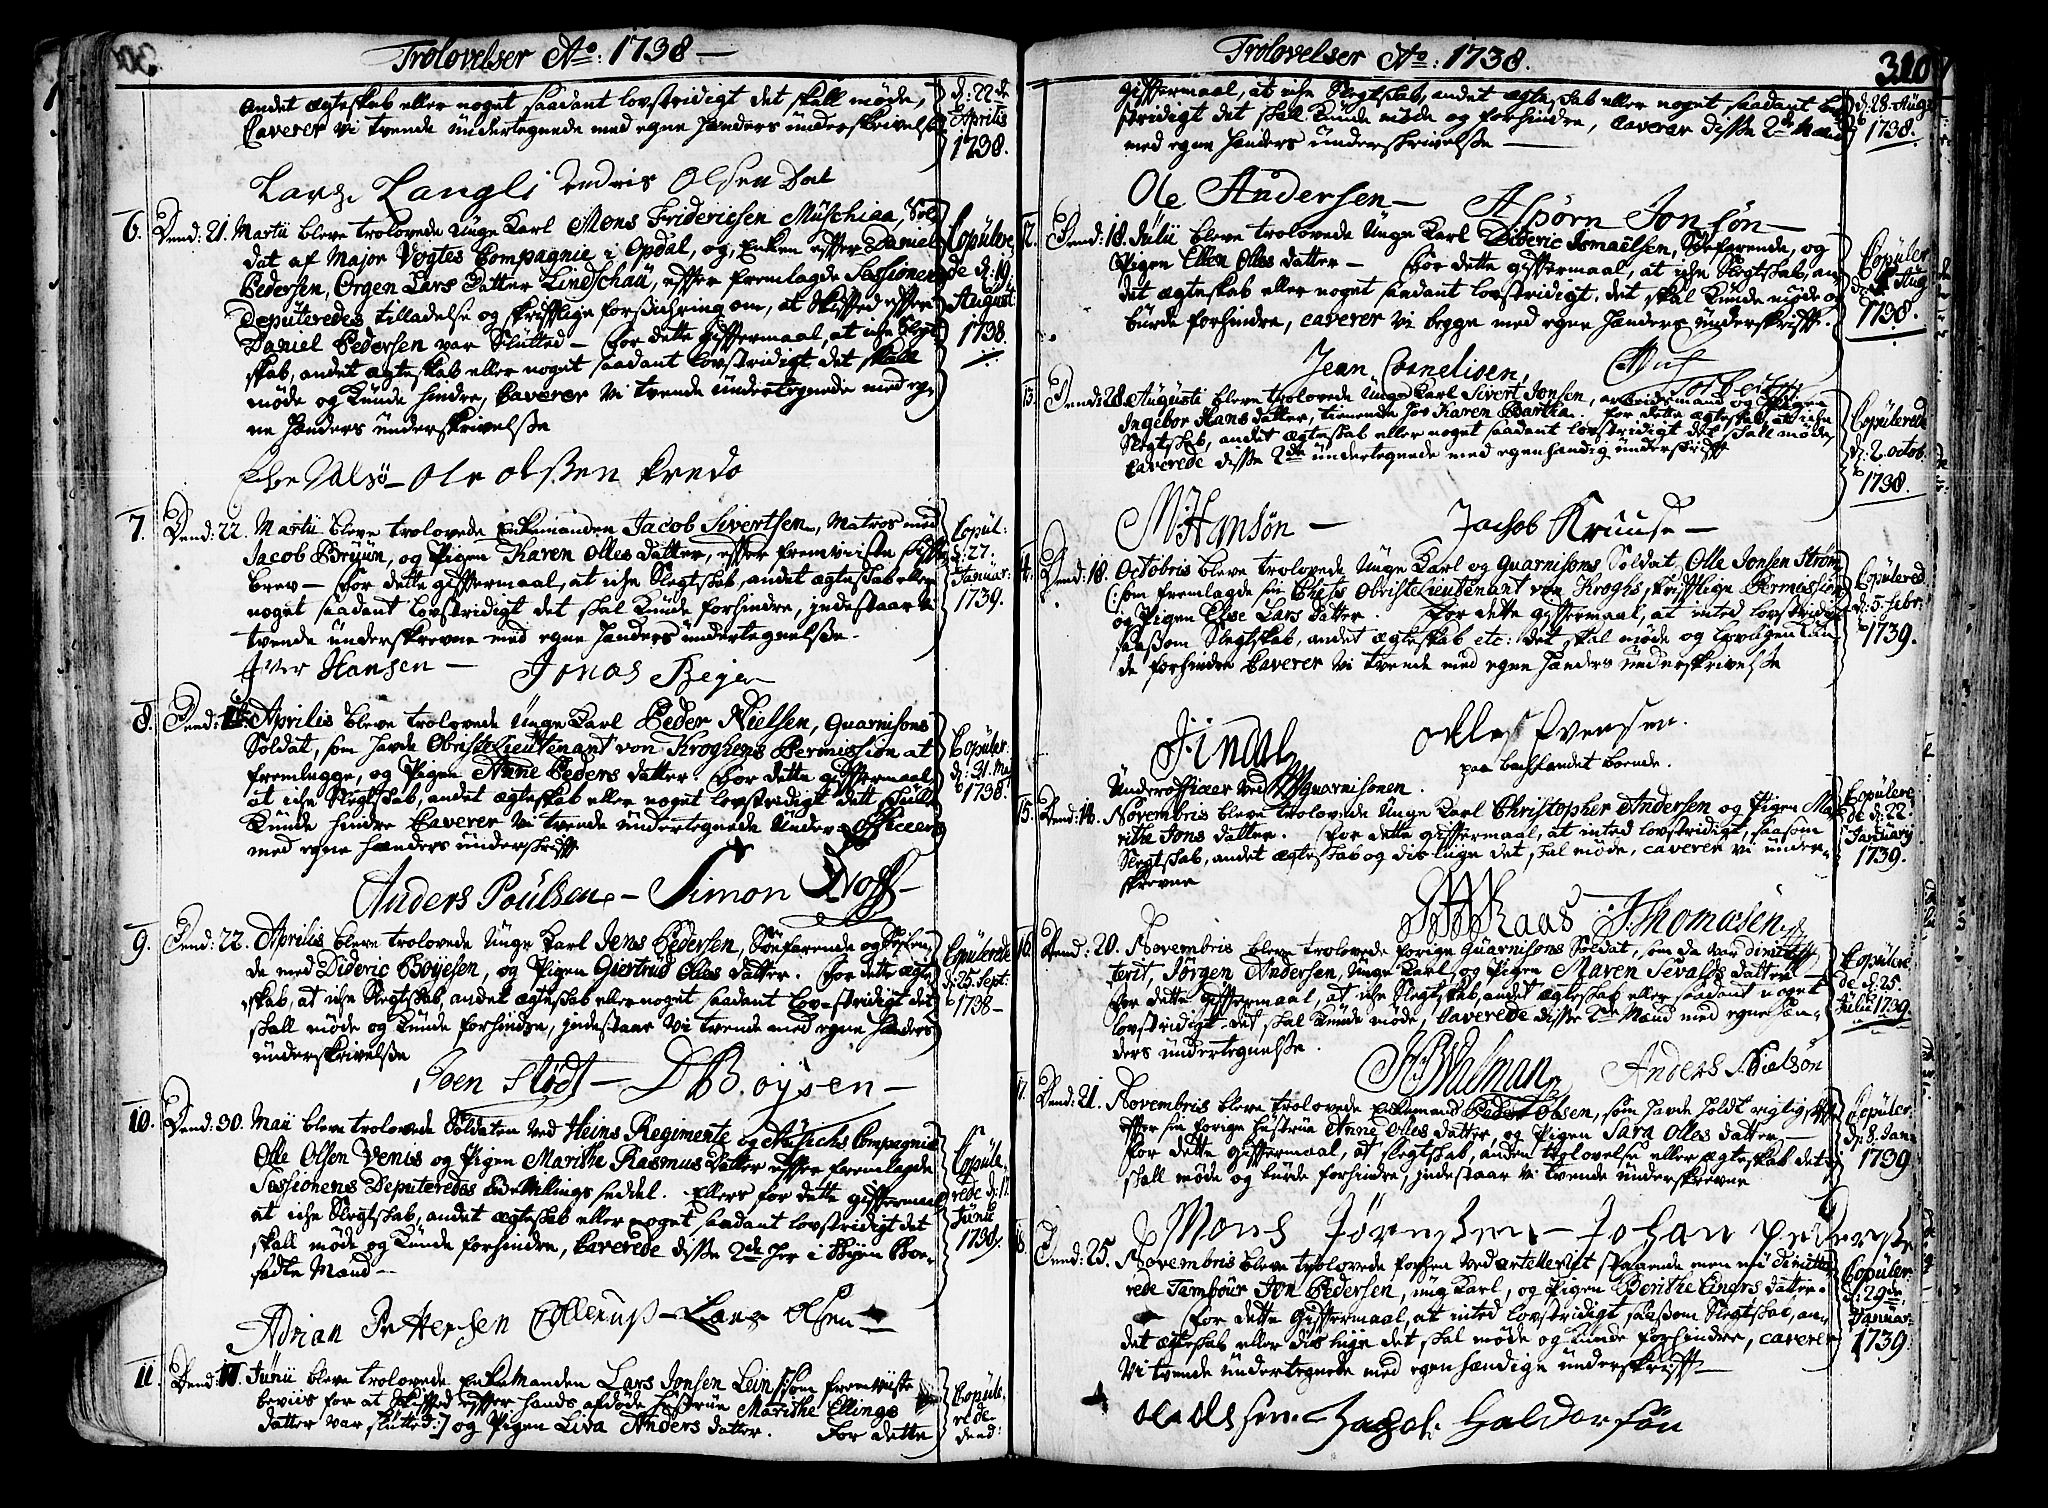 Trolovelser Ao: 1738 —
andet ægteskab eller noget saadant lovstridigt det skall møde,
Caverer vi tvende undertegnede med egne hænders underskrivelse
d: 22de
Aprilis
1738.
Lars Langli Endris Olsen Dal
6. Dend: 21. Martii bleve trolovede Unge Karl Mons Friderichsen Müschiaa, Sol-
dat af Major Vogtes Compagnie i Opdal, og Enken efter Daniel
Pedersen, Ørgen Lars Datter Lindschau, efter fremlagde Sessionens
Deputeredes tilladelse og skrifflige forsichring om, at Skifted efter
Daniel Pedersen var Slutted — for dette gifftermaal, at iche Slegt-
skab, andet ægteskab eller noget saadant lovstridigt det skulle
møde og kunde hindre, Caverer vi tvende undertegnede med eg-
ne hænders underskrivelse
Copulere-
de d: 19.
August
1738.
Ole Olsen Kredo
7. Dend: 22. Martii bleve trolovede Enkemanden Jacob Sivertsen, Matros med
Jacob Bruun, og Pigen Karen Olles datter, efter fremviiste Skiffte
brev — for dette gifftermaal, at iche Slegtskab, andet ægteskab eller
noget saadant lovstridigt det skal kunde forhindre, indestaar vi
tvende underskrevne med egne hænders undertegnelse.
Copul:
d: 27.
Januar:
1739.
Iver Hansen — Jonas Beyer
8. Dend: Aprilis bleve trolovede Unge Karl Peder Nielsen, Guarnisons
Soldat, som hafde Obristelieutenant von Kroghens Permission at
fremlegge, og Pigen Anne Peders datter. For dette gifftermaal
at iche Slegtskab, andet ægteskab eller noget lovstridigt dett skulle
kunde hindre Caverer vi tvende undertegnede Under-Officeer
med egne hænders underskrifft
Copuler:
d: 31. Maj
1738.
Anders Poulsen — Simon Hoff —
9. Dend: 22. Aprilis bleve trolovede Unge Karl Jens Pedersen, Søefarende og
de med Dideric Boyesen, og Pigen Giertrud Olles datter. For dette ægte-
skab, at iche Slegtskab, andet ægteskab eller noget saadant lovstridigt det
skall møde og kunde forhindre, indestaar vi tvende med egne hænders
underskrivelse
Copulerede
d: 25. Sept:
1738 —
Soen Stødt — D Boysen —
10. Dend: 30. Maii bleve trolovede Soldaten ved Heins Regimente og Compagnie
Olle Olsen Venes og Pigen Marithe Rasmus datter efter fremlagde
Sessionens Deputeredes seddel. Ellers for dette gifftermaal
at iche Slegtskab, andet ægteskab eller noget saadant lovstridigt det
skall møde og kunde forhindre, Caverede disse 2de her i Byen Boe-
sadte Mænd —
Copule-
rede d: 17
Junii
1738.
Adrian Pettersen Ollerup — Lars Olsen —
11. Dend: Junii bleve trolovede Enkemanden Lars Jonsen Lein [:som fremviiste
beviis for at Skifted efter hans afdøde hustrue Marithe Ellings
datter var slutted:] og Pigen Liva Anders datter. For dette
Copule-
rede
dend:
Trolovelser Ao: 1738.
310
gifftermaal, at iche Slegtskab, andet ægteskab eller noget saadant lov-
stridigt det skal kunde møde og forhindre, caverer disse 2de Mænd
med egne hænders underskrivelse —
d: 28. Aug:
1738.
Ole Andersen — Asbörn Jonsön —
12. Dend: 18. Julii bleve trolovede Unge Karl Dideric Ismaelsen, Søefarende, og
Pigen Ellen Olles datter — For dette gifftermaal, at iche Slegtskab, an-
det ægteskab eller noget saadant lovstridigt, det skal kunde møde og
burde forhindre, caverer vi begge med egne hænders underskrifft.
Copuler
Aug
1738.
Jean Cornelisen,
13. Dend: 28. Augusti bleve trolovede Unge Karl Sivert Jonsen, arbeidsmand og Pigen
Ingebor Hans datter, tienende hos Karen Bartha. For dette ægteskab, at iche
Slegtskab, andet ægteskab eller noget saadant lovstridigt det skall møde,
Caverede disse 2de undertegnede med egenhændig underskrifft
Copulerede
d: 2. octob.
1738.
M Hansön — Jachob Kruuse —
14. Dend: 18. Octobris bleve trolovede Unge Karl og Guarnisons Soldat, Olle Jonsen Strøm
(:som fremlagde sin Chefs Obristelieutenant von Kroghs skrifftlige Permission
og Pigen Else Lars datter. For dette gifftermaal, at inted lovstridigt
saasom Slegtskab, andet ægteskab etc: det skal møde og lovligen kun-
de forhindre Caverer vi tvende med egne hænders underskrivelse
Copulered
d: 5. Febr:
1739.
Findal Olle Evensen.
Underofficer ved Guarnisonen. paa bachlandet boende.
15. Dend: 14. Novembris bleve trolovede Unge Karl Christopher Andersen og Pigen Ma-
rithe Jons datter. For dette gifftermaal, at inted lovstridigt, saasom
Slegtskab, andet ægteskab og dislige det skal møde, caverer vi under-
skrevne
Copulere-
de d: 22.
Januarij
1739.
Kaas J Thomasen
16. Dend: 20. Novembris bleve trolovede forige Guarnisons Soldat, som da var dimit-
terit, Jörgen Andersen, Unge Karl, og Pigen Maren Sivals datter —
For dette gifftermaal, at iche Slegtskab, andet ægteskab eller saadant noget
lovstridigt det skal kunde møde, Caverede disse 2de Mænd med egne hæn-
ders undertegnelse.
Copulere-
de d: 25.
Julii 1739.
Walman Anders Nielsön
17. Dend: 21. Novembris bleve trolovede Enkemand Peder Olsen, som hafde holdt rigtig skifte
efter sin forige hustrue Anne Olles datter, og Pigen Sara Olles datter —
for dette gifftermaal, at slegtskab, anden trolovelse eller ægteskab det ei
skall møde og burde forhindre, indestaar vi tvende underskrevne
Copuler:
d: 8. Jan:
1739
Mons Jörensen — Johan Pedersen
18. Dend: 25. Novembris bleve trolovede forhen ved artelleriet staaende men nu dimitte-
rede Tambour Jon Pedersen, ung Karl, og Pigen Berithe Einers datter.
For dette gifftermaal, at inted lovstridigt saasom Slegtskab, an-
det ægteskab eller dislige det skal møde og kunde forhindre, caverer
vi tvende undertegnede med egenhændige underskrifft —
Copuler:
d: 29de
Januar:
1739.
Ole Olsen. Jacob Haldorsön